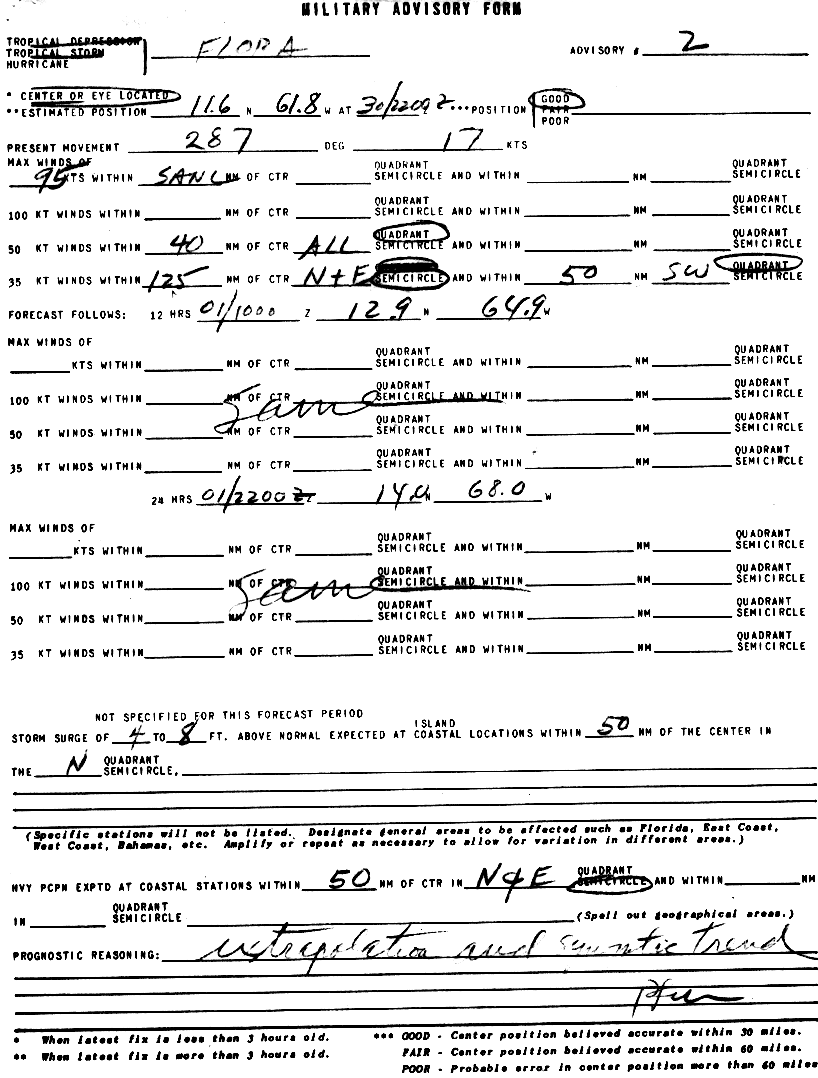 MILITARY ADVISORY FORM
TROPICAL DEPRESSION
TROPICAL STORM FLORA ADVISORY # 2
HURRICANE
* CENTER OR EYE LOCATED GOOD
**ESTIMATED POSITION 11.6 N 61.8 W AT 30/2200 Z ***POSITION FAIR
POOR
PRESENT MOVEMENT 287 DEG 17 KTS
MAX WINDS OF QUADRANT QUADRANT
95 KTS WITHIN NM OF CTR SEMICIRCLE AND WITHIN NM SEMICIRCLE
QUADRANT QUADRANT
100 KT WINDS WITHIN NM OF CTR SEMICIRCLE AND WITHIN NM SEMICIRCLE
QUADRANT QUADRANT
50 KT WINDS WITHIN 40 NM OF CTR ALL SEMICIRCLE AND WITHIN NM SEMICIRCLE
QUADRANT
35 KT WINDS WITHIN 125 NM OF CTR N+E SEMICIRCLE AND WITHIN 50 NM SW SEMICIRCLE
FORECAST FOLLOWS: 12 HRS 01/1000 Z 12.9 N 64.9 W
MAX WINDS OF QUADRANT QUADRANT
KTS WITHIN NM OF CTR SEMICIRCLE AND WITHIN NM SEMICIRCLE
QUADRANT QUADRANT
100 KT WINDS WITHIN NM OF CTR SEMICIRCLE AND WITHIN NM SEMICIRCLE
Same
QUADRANT QUADRANT
50 KT WINDS WITHIN NM OF CTR SEMICIRCLE AND WITHIN NM SEMICIRCLE
QUADRANT QUADRANT
35 KT WINDS WITHIN NM OF CTR SEMICIRCLE AND WITHIN NM SEMICIRCLE
24 HRS 01/2200 Z 14.0 N 68.0 W
MAX WINDS OF QUADRANT QUADRANT
KTS WITHIN NM OF CTR SEMICIRCLE AND WITHIN NM SEMICIRCLE
QUADRANT QUADRANT
100 KT WINDS WITHIN NM OF CTR SEMICIRCLE AND WITHIN NM SEMICIRCLE
Same
QUADRANT QUADRANT
50 KT WINDS WITHIN NM OF CTR SEMICIRCLE AND WITHIN NM SEMICIRCLE
QUADRANT QUADRANT
35 KT WINDS WITHIN NM OF CTR SEMICIRCLE AND WITHIN NM SEMICIRCLE
NOT SPECIFIED FOR THIS FORECAST PERIOD
ISLAND
STORM SURGE OF 4 TO 8 FT. ABOVE NORMAL EXPECTED AT COASTAL LOCATIONS WITHIN 50 NM OF THE CENTER IN
QUADRANT
THE N SEMICIRCLE,
(Specific stations will not be listed. Designate general areas to be affected such as Florida, East Coast,
West Coast, Bahamas, etc. Amplify or repeat as necessary to allow for variation in different areas.)
QUADRANT
HVY PCPN EXPTD AT COASTAL STATIONS WITHIN 50 NM OF CTR IN N&E SEMICIRCLE AND WITHIN NM
QUADRANT
IN SEMICIRCLE (Spell out geographical areas.)
PROGNOSTIC REASONING: extrapolation and synoptic trend
* When latest fix is less than 3 hours old. *** GOOD - Center position believed accurate within 30 miles.
** When latest fix is more than 3 hours old. FAIR - Center position believed accurate within 60 miles.
POOR - Probable error in center position more than 60 miles